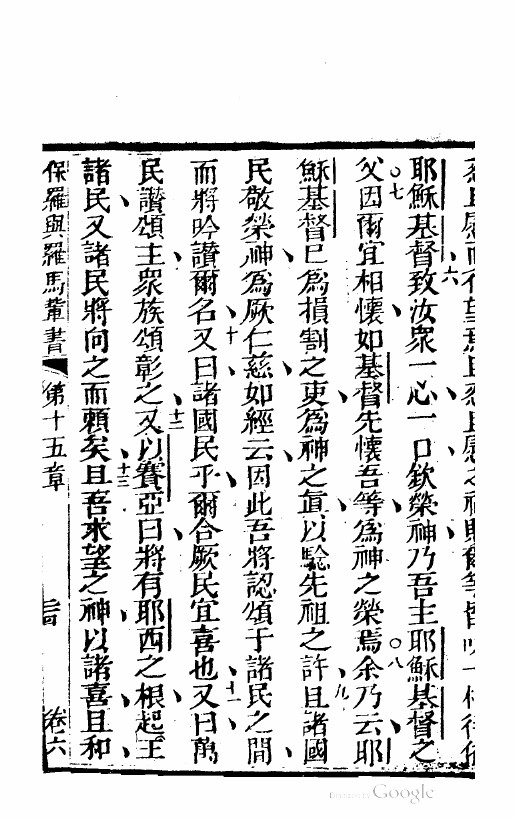 忍且慰而有望焉六且忍且慰之神賜爾等皆
耶穌基督致汝眾一心一口欽榮神乃吾主耶穌基督之
○七
父因爾宜相懷如基督先懷吾等為神之榮焉○八余乃云耶
穌基督已為損割之吏為神之真以驗先祖之許九且諸國
民敬榮神為厥仁慈如經云因此吾將認頌于諸民之間
而將吟讚爾名十又曰諸國民乎爾合厥民宜喜也十一又曰萬
民讚頌主眾族頌彰之十二又以賽亞曰將有耶西之根起王
諸民又諸民將向之而賴矣十三且吾求望之神以諸喜且和
保羅與羅馬輩書 第十五章 三四 卷六
Digitized by Google